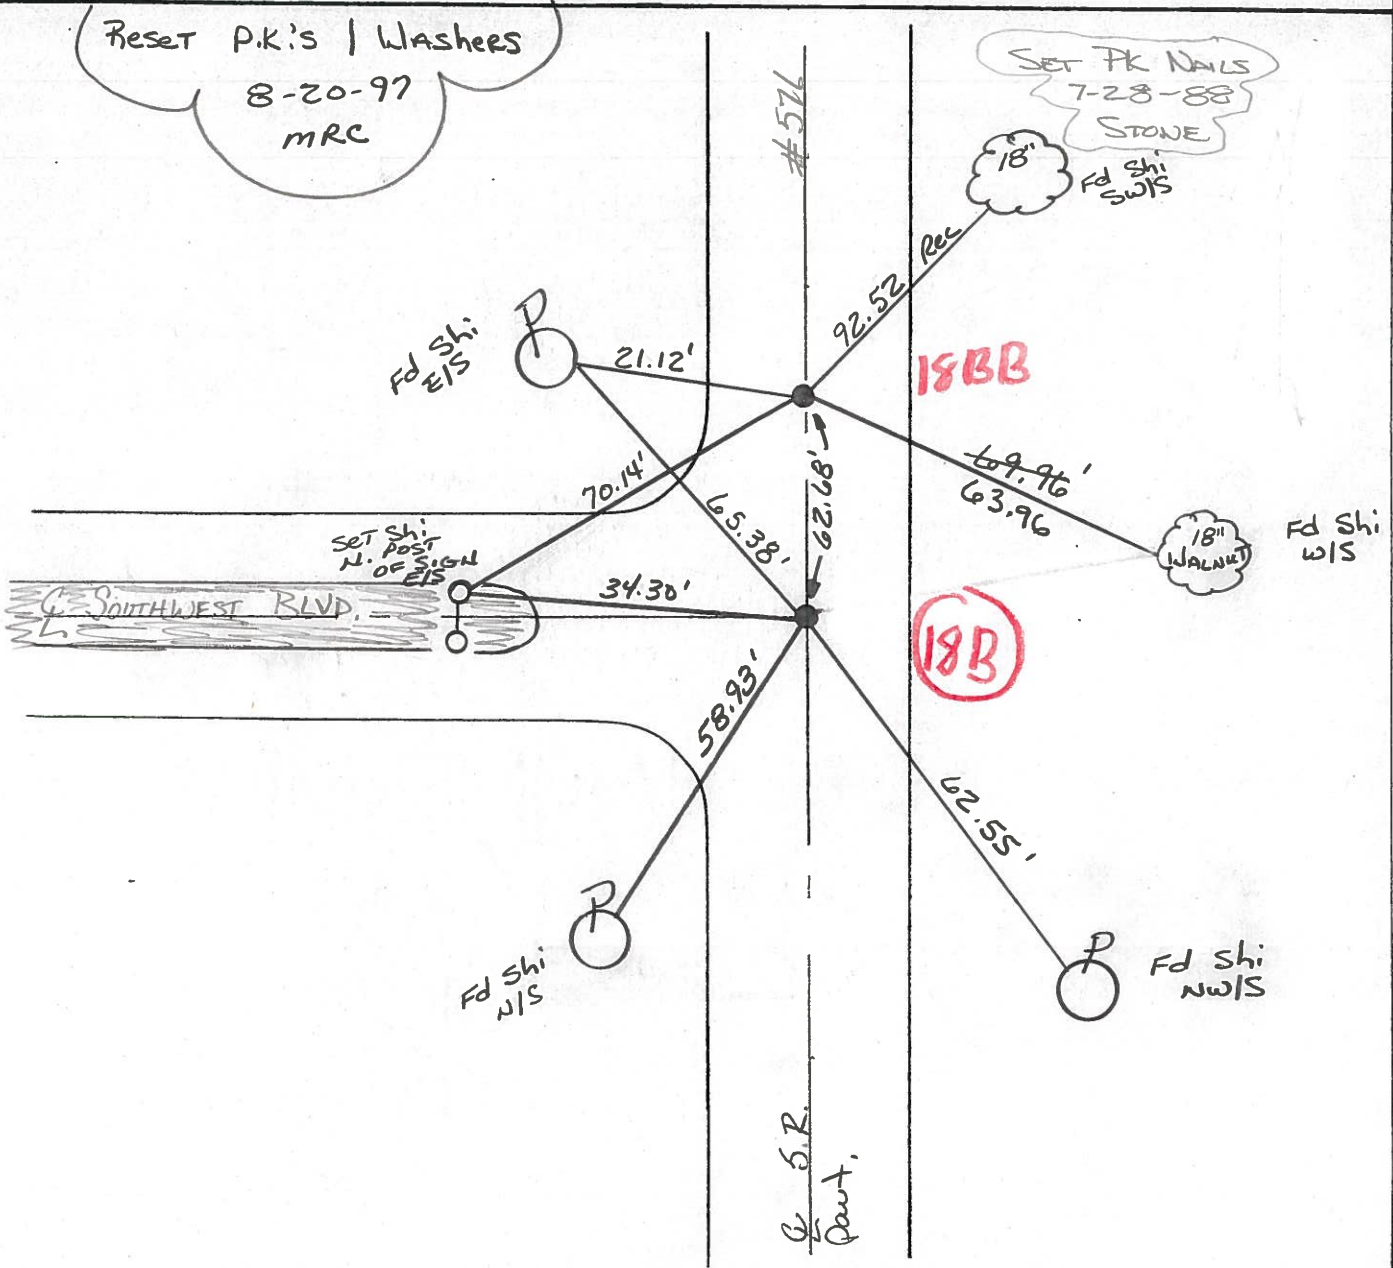 Reset P.K.'s / Washers
8-20-97
MRC
SET PK NAILS
7-28-88
STONE
#576
18"
Fd Shi
SW/S
92.52 Rec
P
Fd Shi
E/S
21.12'
18BB
70.14'
65.38'
62.68'
69.96'
63.96
18"
WALNUT
Fd Shi
W/S
SET Shi
N. POST
OF SIGN
E/S
34.30'
℄ SOUTHWEST BLVD.
18B
58.93'
62.55'
P
Fd Shi
N/S
P
Fd Shi
NW/S
℄ S.R.
Pavt.